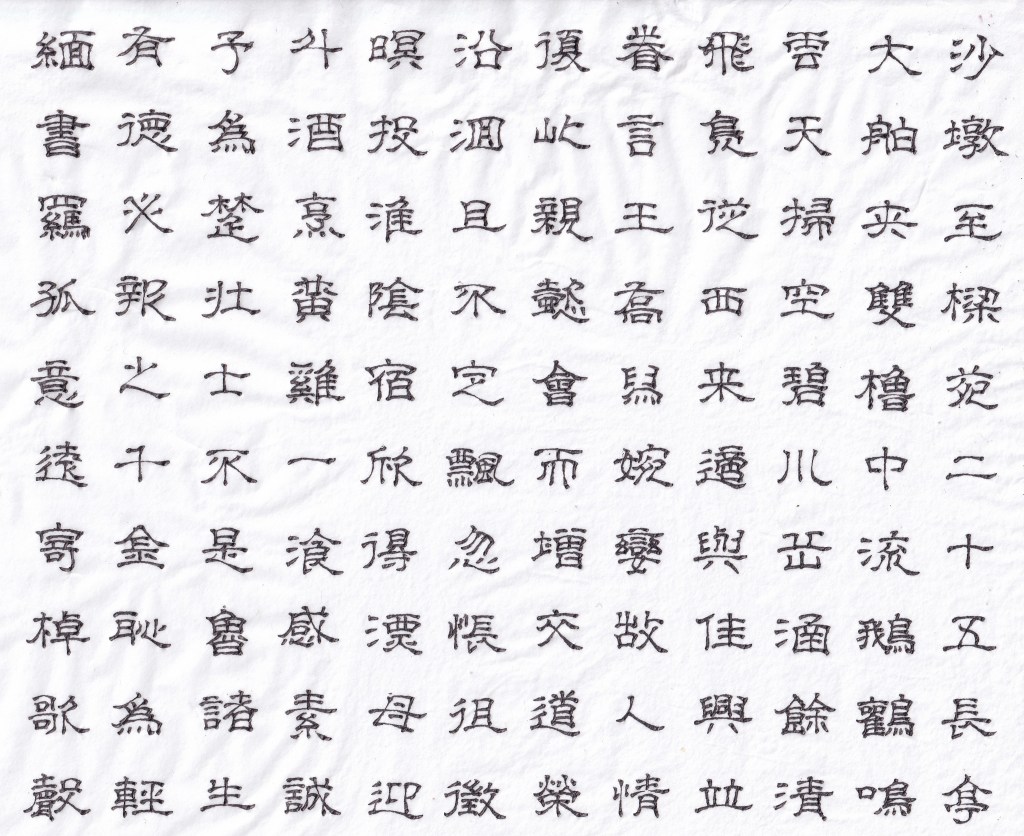 沙墩至樑苑二十五長亭
大舶夾雙櫓中流鵝鸛鳴
雲天掃空碧川岳涵餘清
飛鳧從西来適與佳興並
眷言王喬舄婉孌故人情
復此親懿會而增交道榮
沿洄且不定飄忽悵徂徵
暝投淮陰宿欣得漂母迎
斗酒烹黃雞一湌感素誠
予為楚壯士不是魯諸生
有德必報之千金耻為輕
緬書羈孤意遠寄棹歌聲